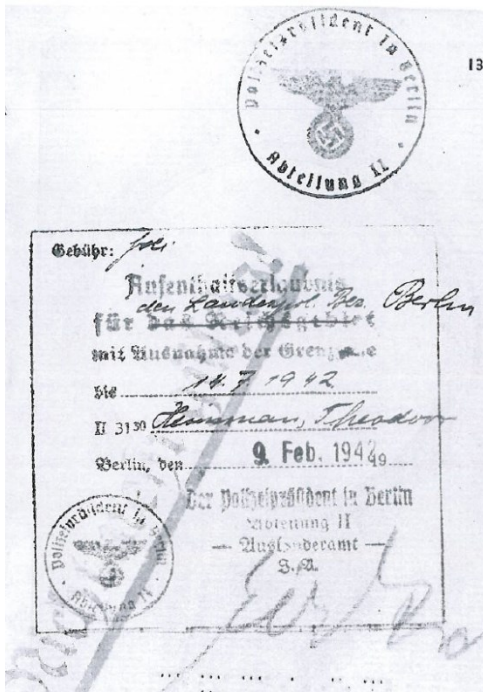 Polizeipräsident in Berlin
Abteilung II
13
Gebühr: frei
Aufenthaltserlaubnis
den Landespol. Bez. Berlin
für das Reichsgebiet
mit Ausnahme der
bis 14.7.1942
II 3130 Theodoor
Berlin, den 9. Feb. 1942 19
Der Polizeipräsident in Berlin
Abteilung II
— Ausländeramt —
Polizeipräsident in Berlin
Abteilung II